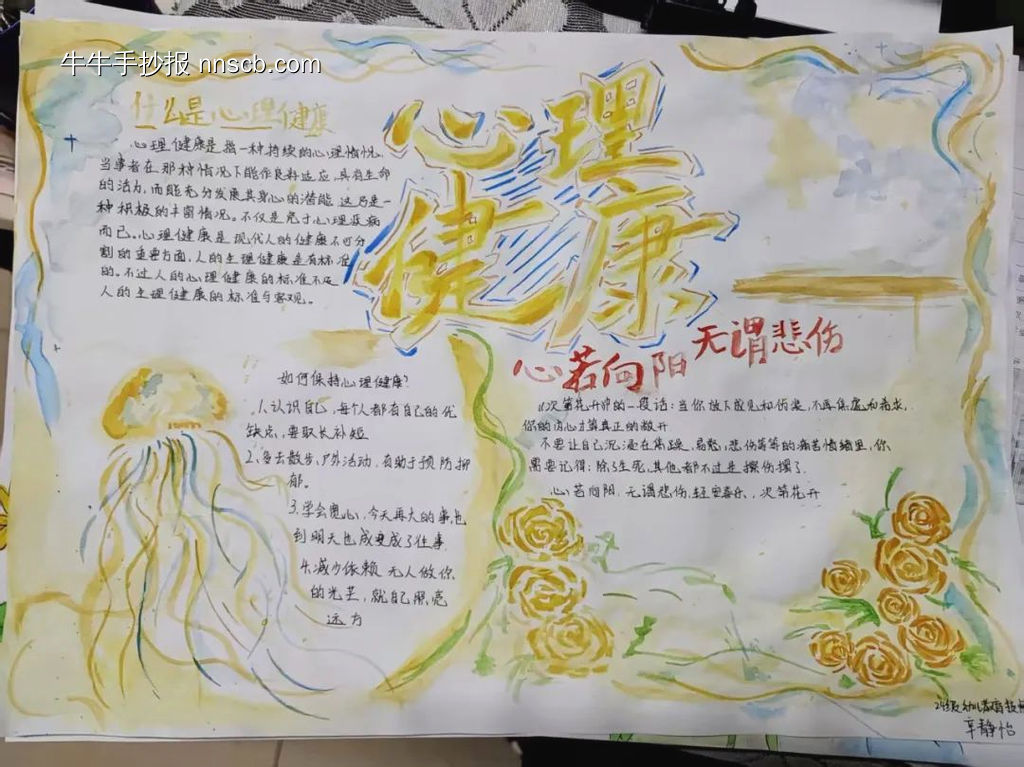 牛牛手抄报 nnscb.com
什么是心理健康
心理健康是指一种持续的心理情况,
当事者在那种情况下能作良好适应,具有生命
的活力,而能充分发展其身心的潜能,这乃是一
种积极的丰富情况。不仅是免于心理疾病
而已。心理健康是现代人的健康不可分
割的重要方面,人的生理健康是有标准
的。不过人的心理健康的标准不及
人的生理健康的标准与客观。
心理
健康
如何保持心理健康?
1.认识自己,每个人都有自己的优
缺点,要取长补短
2.多去散步,户外活动,有助于预防抑
郁。
3.学会宽心,今天再大的事,也
到明天也成变成了往事
4.减少依赖 无人做你
的光芒,就自己照亮
远方
心若向阳 无谓悲伤
次第花开中的一段话:当你放下成见和伤害,不再焦虑和希求,
你的内心才算真正的敞开
不要让自己沉浸在焦躁、易怒,悲伤等等的痛苦情绪里,你
需要记得:除了生死,其他都不过是擦伤擦了
心若向阳,无谓悲伤,轻安喜乐,次第花开
24级幼儿教育
辛静怡